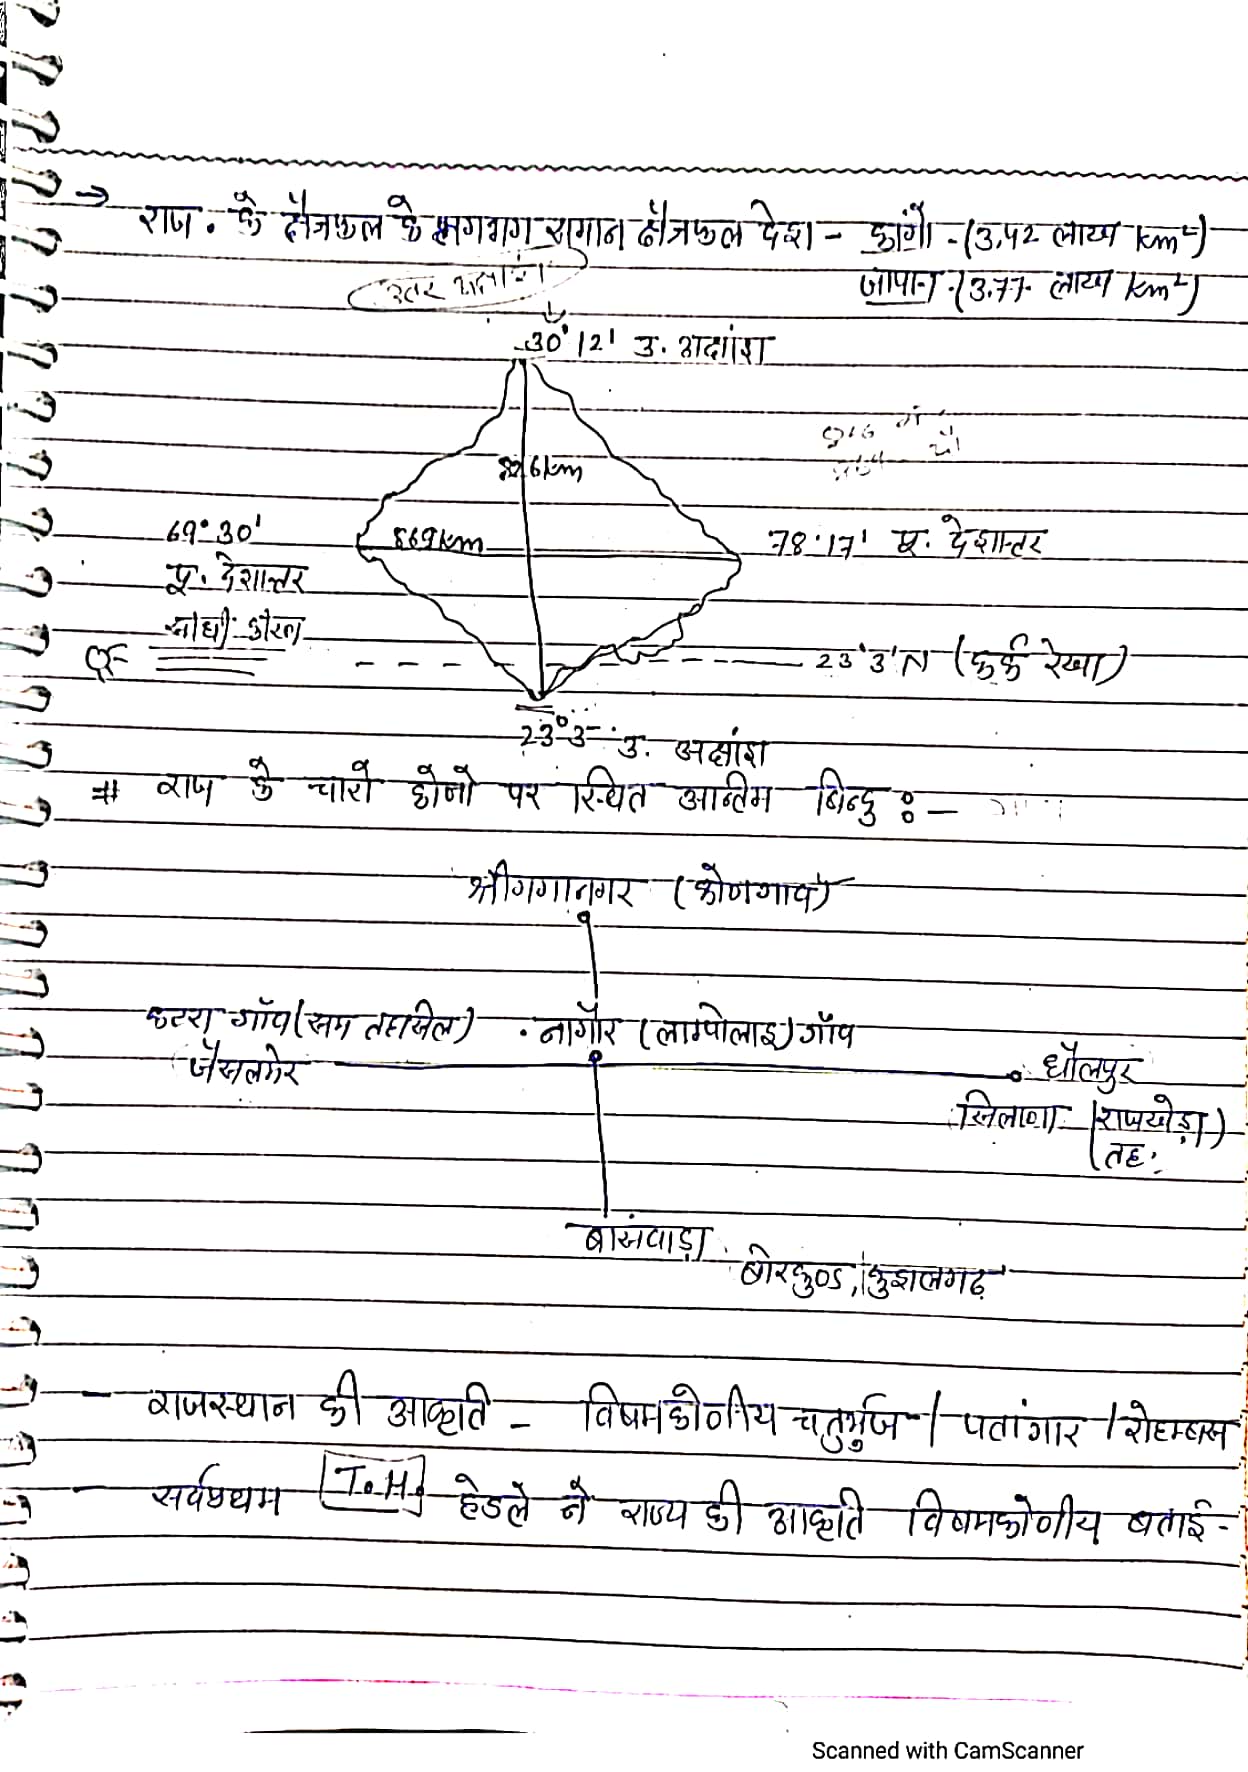 → राज. के क्षैत्रफल के लगभग समान क्षैत्रफल देश - कांगो - (3.42 लाख km²)
जापान - (3.77 लाख km²)
उत्तर अक्षांश
30° 12' उ. अक्षांश
826 km
69° 30'
पू. देशान्तर
869 km
78° 17' पू. देशान्तर
23° 3' N (कर्क रेखा)
23° 3' उ. अक्षांश
# राज के चारो कोणो पर स्थित अन्तिम बिन्दु :-
श्रीगंगानगर (कोणगाव)
कटरा गाँव (सम तहसिल)
जैसलमेर
• नागौर (लाम्पोलाइ) गाँव
धौलपुर
सिलाना (राजखेड़ा)
(तह.
बांसवाड़ा
बोरकुण्ड, कुशलगढ़
- राजस्थान की आकृति - विषमकोणीय चतुर्भुज / पतांगार / रोहम्बस
- सर्वप्रथम T.H. हेडले ने राज्य की आकृति विषमकोणीय बताई -
Scanned with CamScanner